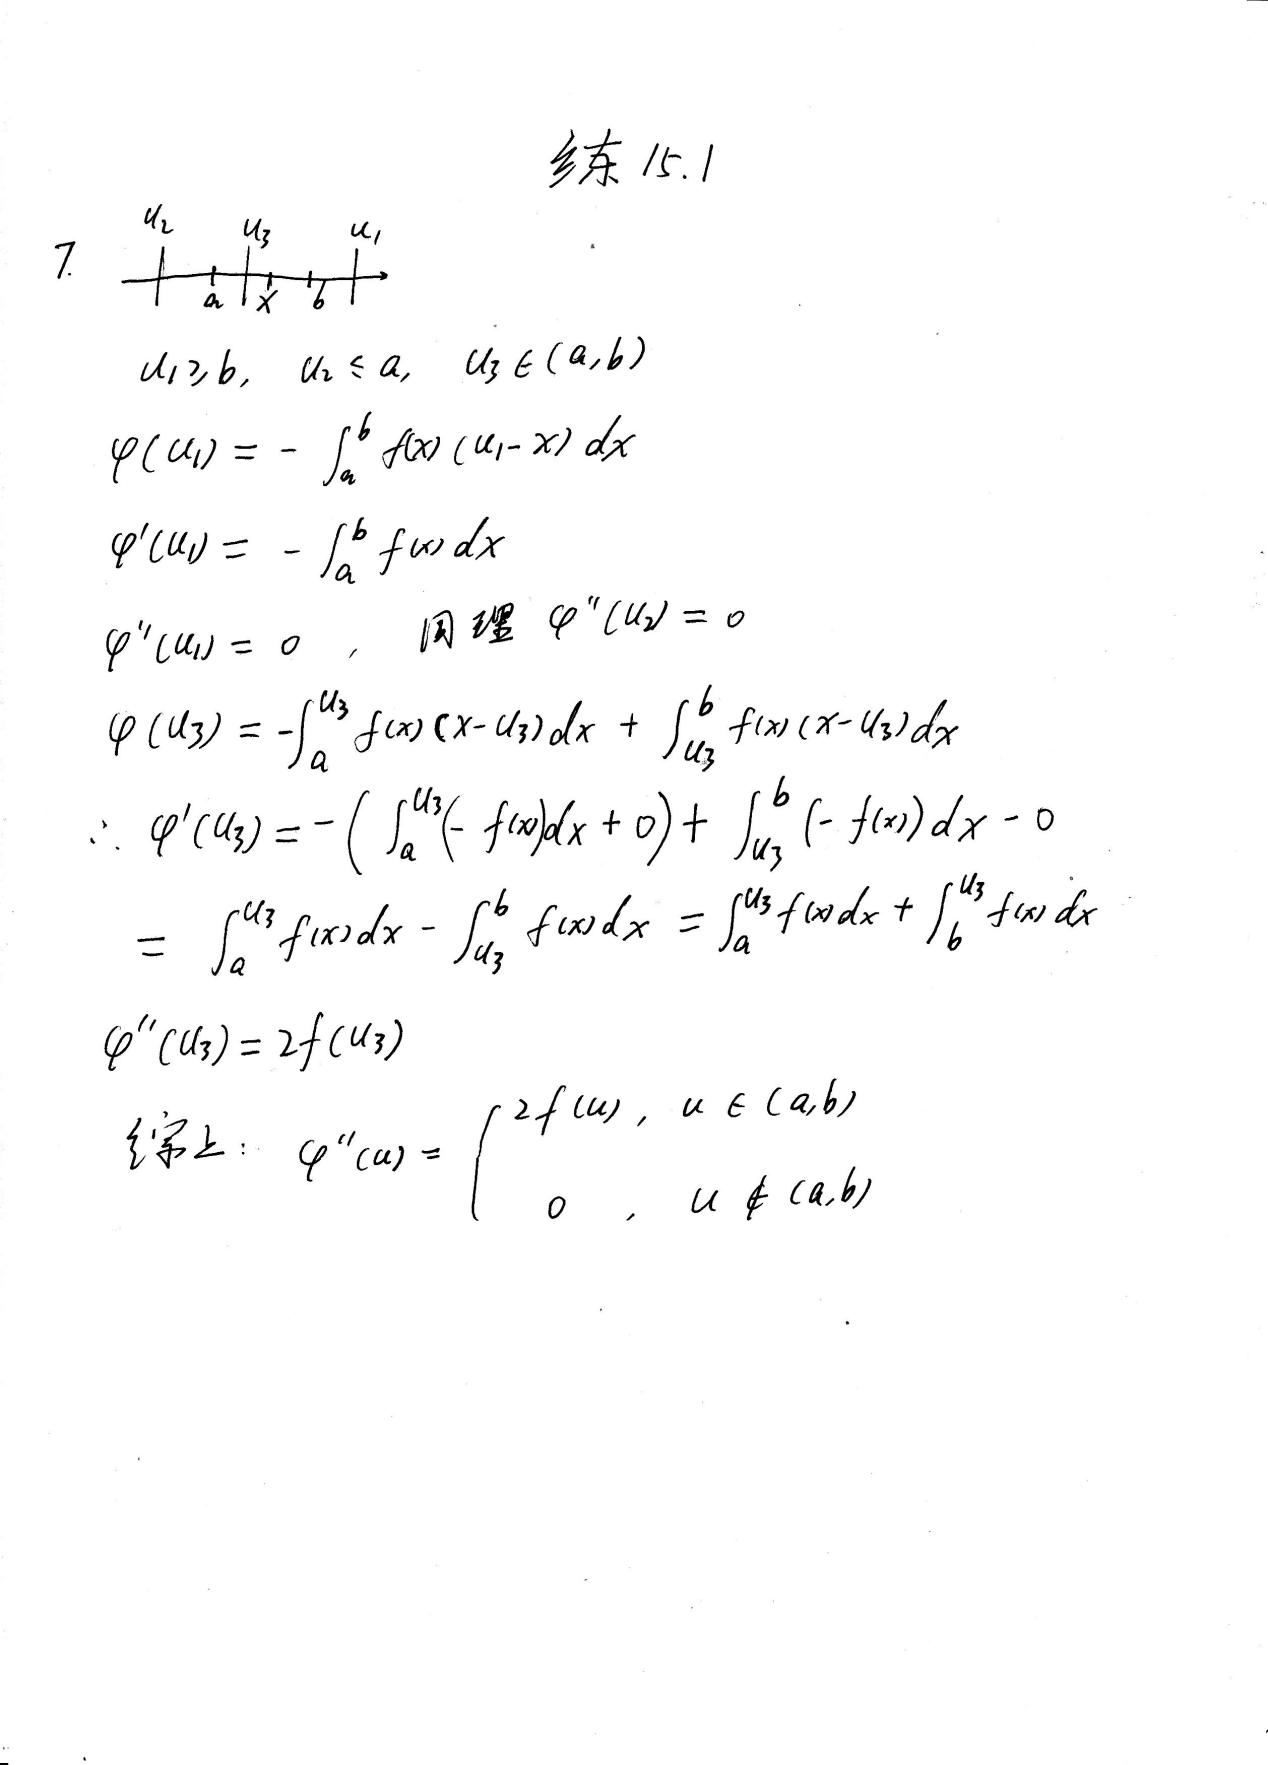 练 15.1
7.
u₂ u₃ u₁
a x b
u₁≥b, u₂≤a, u₃∈(a,b)
φ(u₁) = - ∫ₐᵇ f(x)(u₁-x) dx
φ'(u₁) = - ∫ₐᵇ f(x) dx
φ''(u₁) = 0 , 同理 φ''(u₂) = 0
φ(u₃) = -∫_a^{u₃} f(x)(x-u₃)dx + ∫_{u₃}^b f(x)(x-u₃)dx
∴ φ'(u₃) = -(∫_a^{u₃}(-f(x))dx + 0) + ∫_{u₃}^b (-f(x))dx - 0
= ∫_a^{u₃} f(x)dx - ∫_{u₃}^b f(x)dx = ∫_a^{u₃} f(x)dx + ∫_b^{u₃} f(x)dx
φ''(u₃) = 2f(u₃)
综上: φ''(u) = { 2f(u), u∈(a,b)
0 , u∉(a,b)